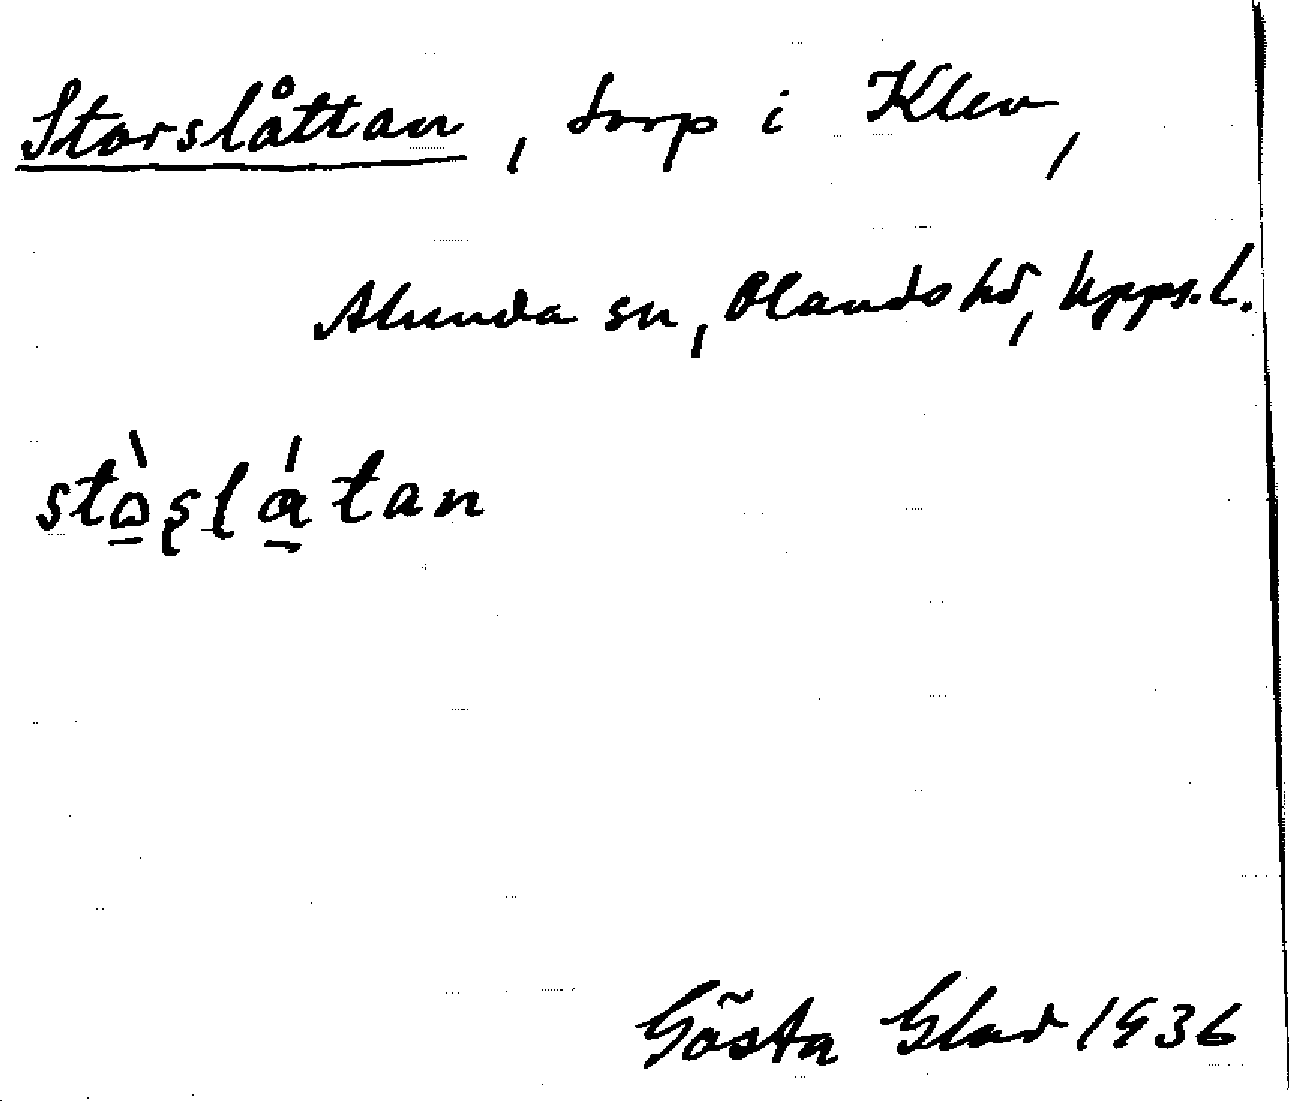 Storslåttan, torp i Klev,
Alunda sn, Olands hd, Upps. l.
Gösta Glad 1936